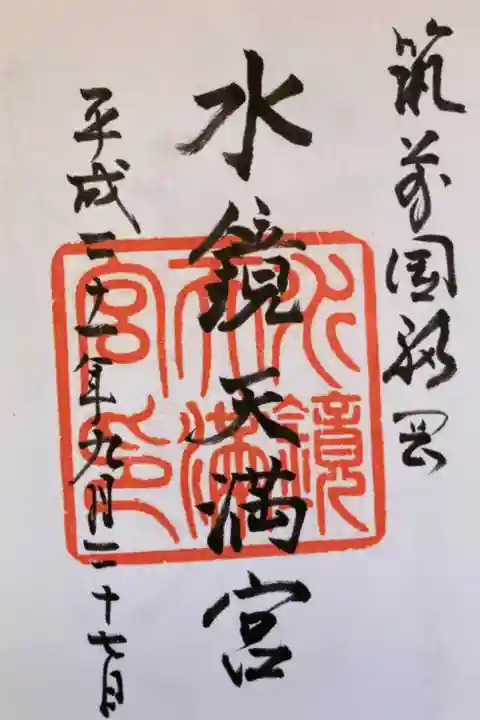 筑前国福岡
水鏡天満宮
平成二十一年九月二十七日
水鏡
天満
宮印